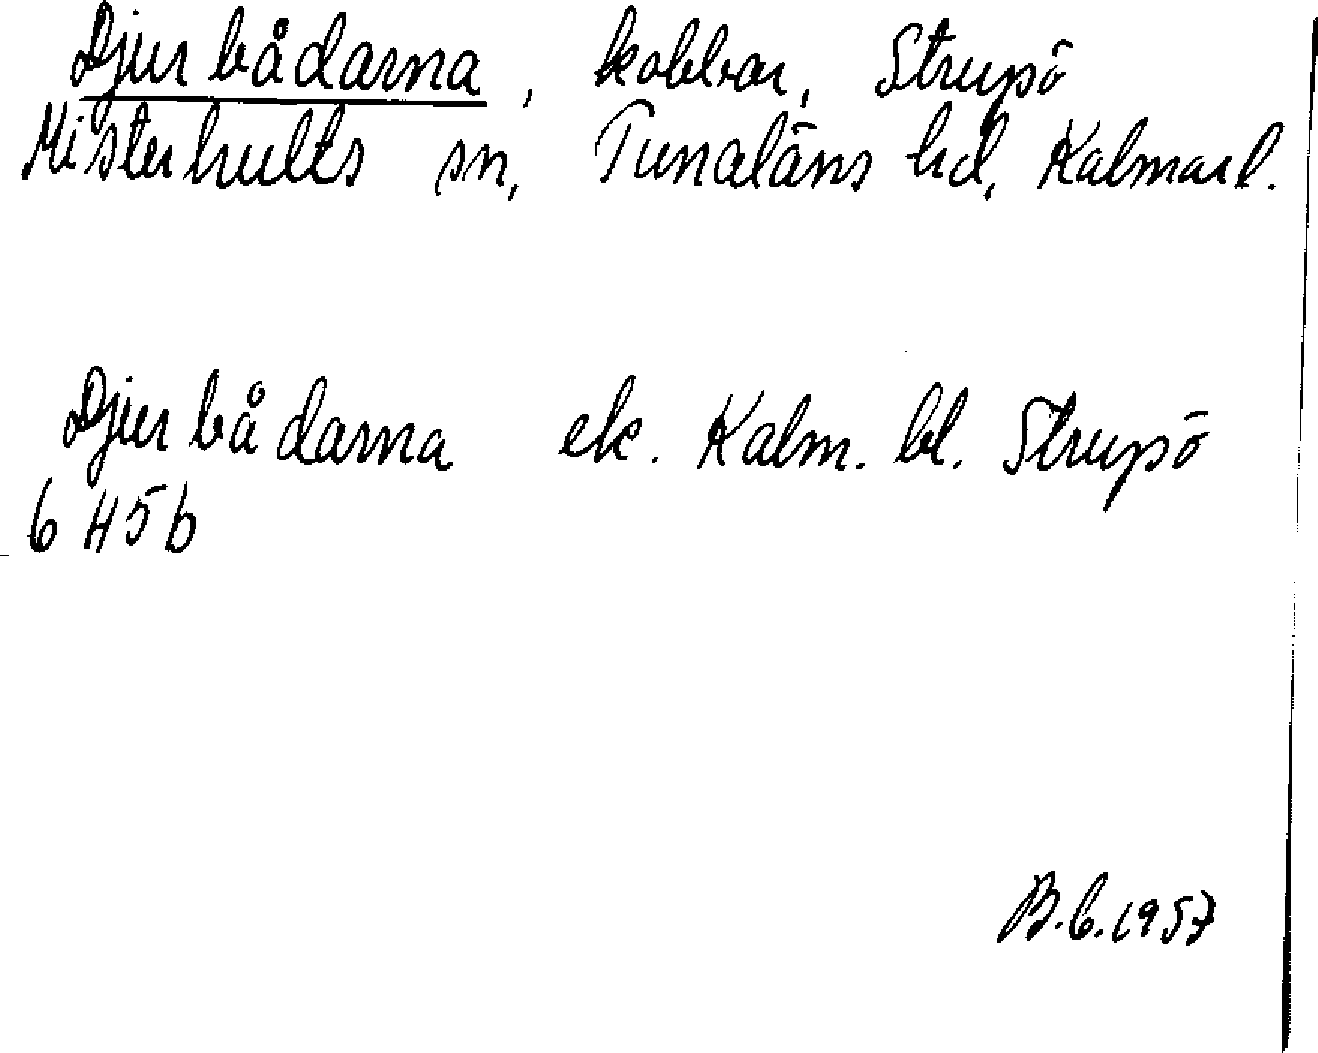 Djurbådarna, kobbar, Strupö
Misterhults sn, Tunaläns hd, Kalmar l.
Djurbådarna ek. Kalm. bl. Strupö
6 H5b
B.C.1957